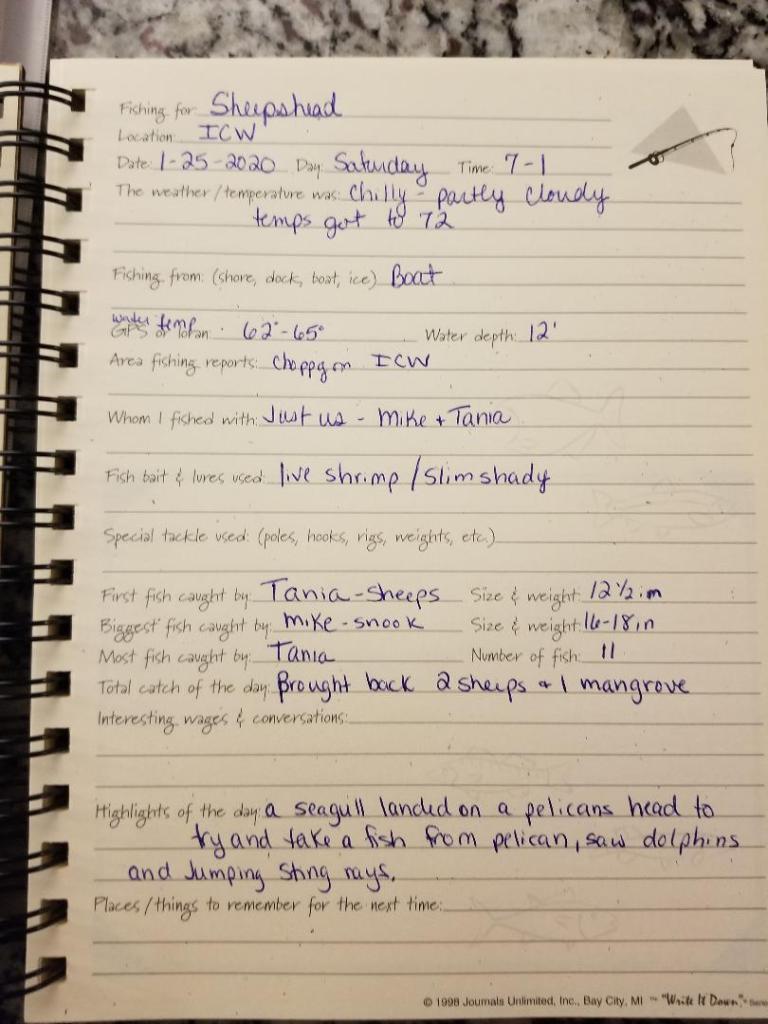 Fishing for: Sheepshead
Location: ICW
Date: 1-25-2020 Day: Saturday Time: 7-1
The weather/temperature was: Chilly - partly cloudy
temps got to 72
Fishing from: (shore, dock, boat, ice) Boat
water temp
GPS or loran: 62°-65° Water depth: 12'
Area fishing reports: Choppy on ICW
Whom I fished with: Just us - Mike + Tania
Fish bait & lures used: live shrimp / Slim shady
Special tackle used: (poles, hooks, rigs, weights, etc.)
First fish caught by: Tania - Sheeps Size & weight: 12 1/2 in
Biggest fish caught by: Mike - snook Size & weight: 16-18in
Most fish caught by: Tania Number of fish: 11
Total catch of the day: Brought back 2 sheeps + 1 mangrove
Interesting wages & conversations:
Highlights of the day: a seagull landed on a pelicans head to
try and take a fish from pelican, saw dolphins
and Jumping Sting rays.
Places/things to remember for the next time:
© 1998 Journals Unlimited, Inc., Bay City, MI ~ "Write It Down"